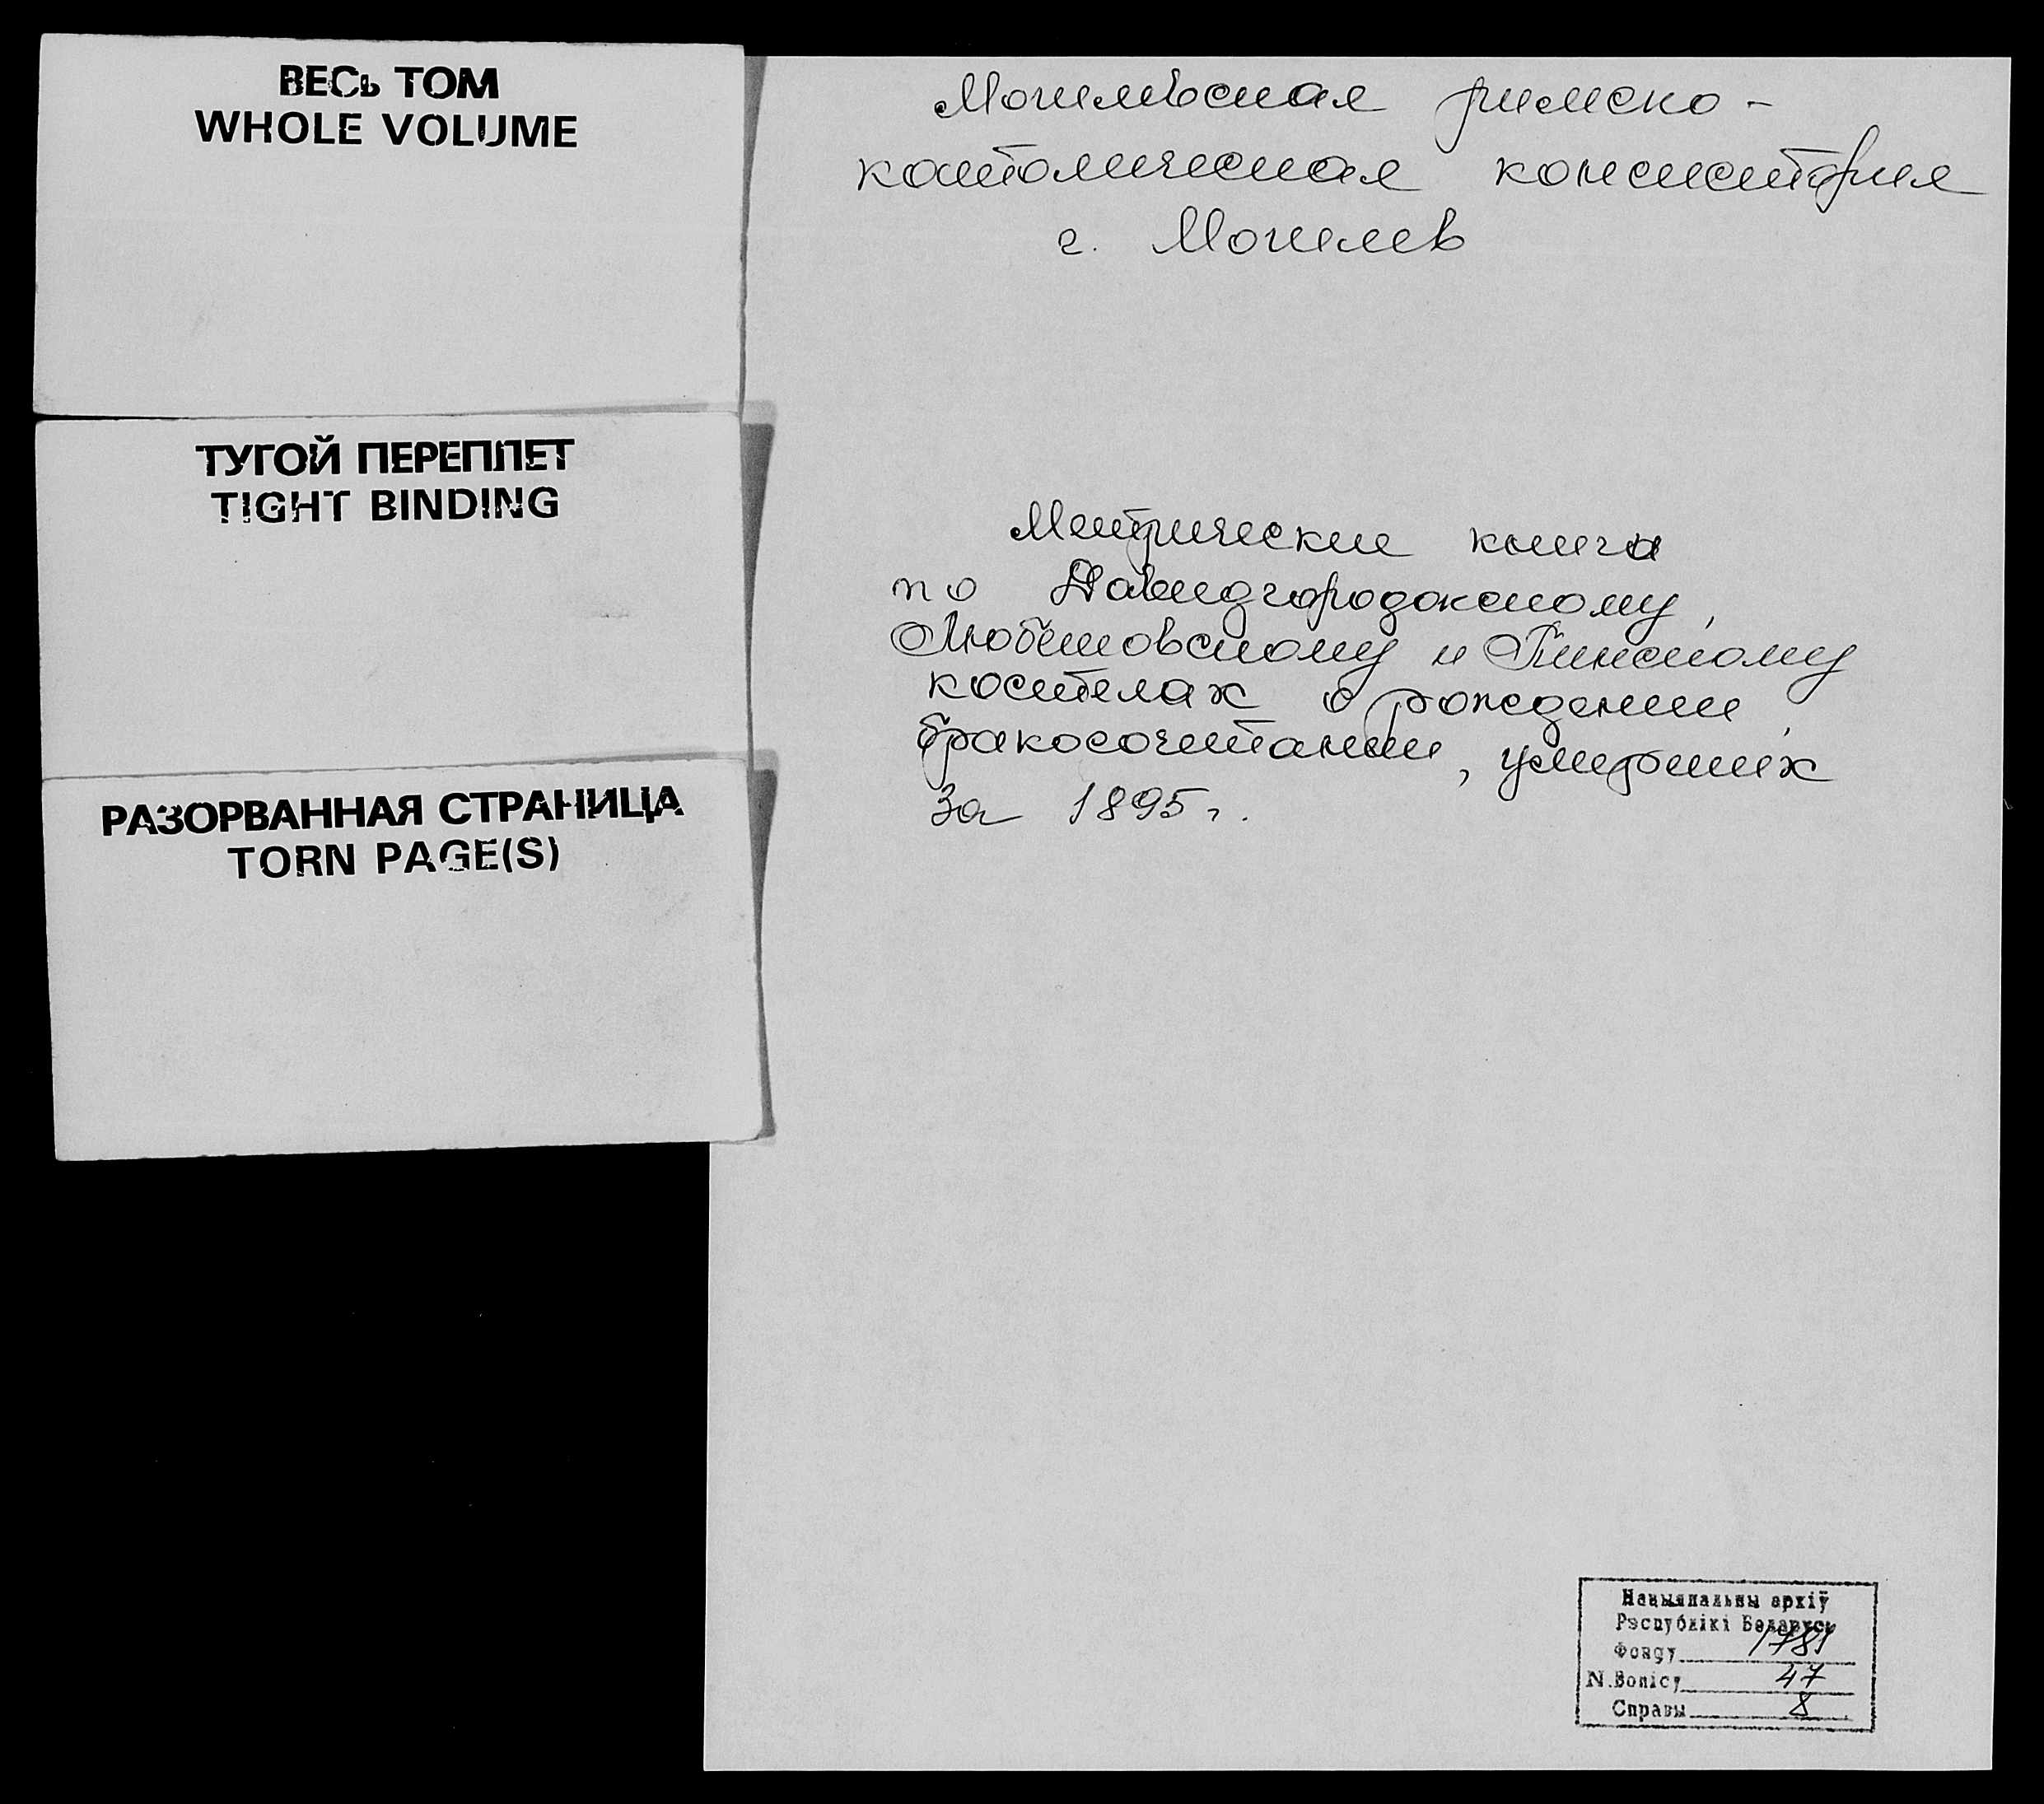 ВЕСЬ ТОМ
WHOLE VOLUME
ТУГОЙ ПЕРЕПЛЕТ
TIGHT BINDING
РАЗОРВАННАЯ СТРАНИЦА
TORN PAGE(S)
Могилевская римско-
католическая консистория
г. Могилев
Метрические книги
по Давидгородокскому,
Любешовскому и Пинскому
костелах о рождении,
бракосочетании, умерших
за 1895 г.
Нацыянальны архіў
Рэспублікі Беларусь
Фонду 1781
N. Вопісу 47
Справы 8